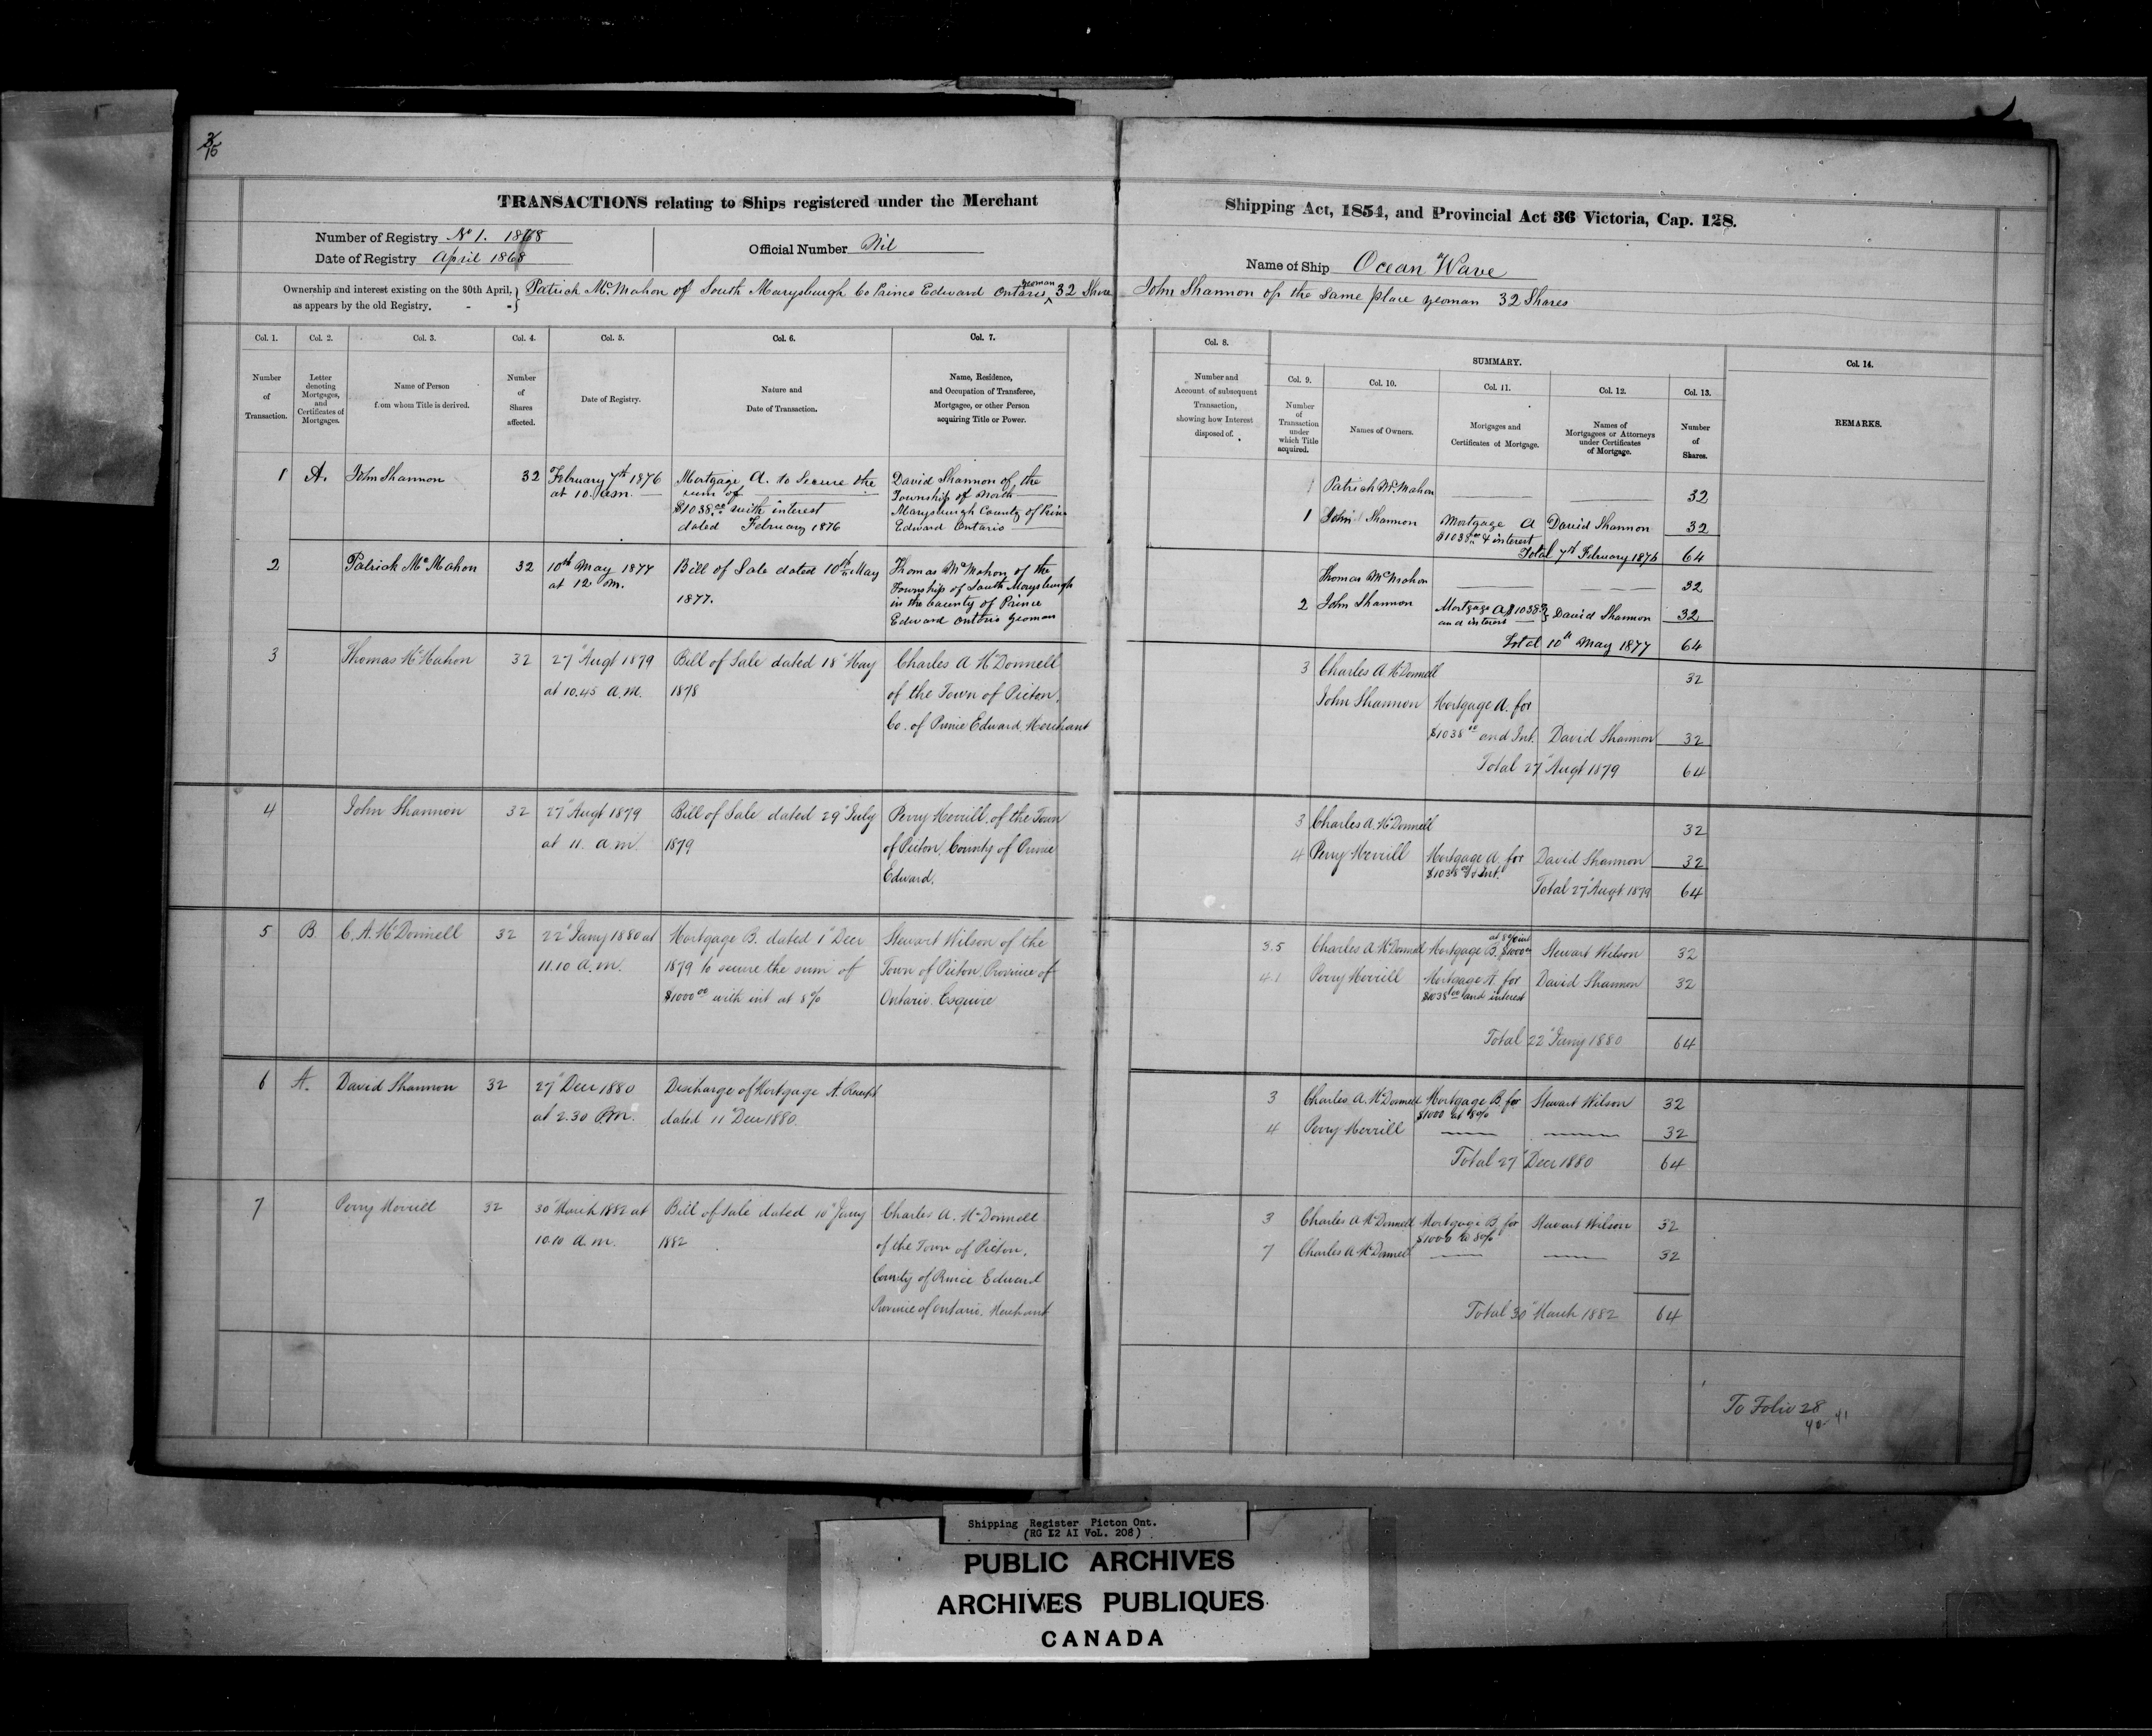 TRANSACTIONS relating to Ships registered under the Merchant
Number of Registry No 1. 1868
Date of Registry April 1868
Official Number Nil
Ownership and interest existing on the 30th April, as appears by the old Registry. Patrick McMahon of South Marysburgh Co Prince Edward Ontario yeoman 32 Share
Col. 1. Col. 2. Col. 3. Col. 4. Col. 5. Col. 6. Col. 7.
Number of Transaction.
Letter denoting Mortgages, and Certificates of Mortgages.
Name of Person from whom Title is derived.
Number of Shares affected.
Date of Registry.
Nature and Date of Transaction.
Name, Residence, and Occupation of Transferee, Mortgagee, or other Person acquiring Title or Power.
1 A. John Shannon 32 February 7th 1876 Mortgage A. to Secure the David Shannon of the
at 10. a.m. sum of Township of North
$1038.00 with interest Marysburgh County of Prin
dated February 1876 Edward Ontario
2 Patrick McMahon 32 10th May 1877 Bill of Sale dated 10th May Thomas McMahon of the
at 12 m. Township of South Marysburgh
1877. in the County of Prince
Edward Ontario yeoman
3 Thomas McMahon 32 27" Augt 1879 Bill of Sale dated 18" May Charles A McDonnell
at 10.45 a.m. 1878 of the Town of Picton,
Co. of Prince Edward, Merchant
4 John Shannon 32 27" Augt 1879 Bill of Sale dated 29" July Perry Merrill, of the Town
at 11. a.m. 1879 of Picton, County of Prince
Edward.
5 B. C. A. McDonnell 32 22" Jany 1880 at Mortgage B. dated 1" Decr Stewart Wilson of the
11.10 a.m. 1879 to secure the sum of Town of Picton, Province of
$1000.00 with int at 8% Ontario. Esquire
6 A. David Shannon 32 27" Decr 1880 Discharge of Mortgage A. Receipt
at 2.30 P.m. dated 11" Decr 1880.
7 Perry Merrill 32 30" March 1882 at Bill of Sale dated 10" Jany Charles A. McDonnell
10.10 a.m. 1882 of the Town of Picton,
County of Prince Edward
Province of Ontario, Merchant
Shipping Act, 1854, and Provincial Act 36 Victoria, Cap. 128.
Name of Ship "Ocean Wave"
John Shannon of the same place yeoman 32 Shares
Col. 8.
Number and Account of subsequent Transaction, showing how Interest disposed of.
SUMMARY.
Col. 9. Col. 10. Col. 11. Col. 12. Col. 13. Col. 14.
Number of Transaction under which Title acquired.
Names of Owners.
Mortgages and Certificates of Mortgage.
Names of Mortgagees or Attorneys under Certificates of Mortgage.
Number of Shares.
REMARKS.
1 Patrick McMahon 32
1 John Shannon Mortgage A David Shannon 32
$1038.00 & interest
Total 7th February 1876 64
Thomas McMahon 32
2 John Shannon Mortgage A $1038 David Shannon 32
and interest
Total 10th May 1877 64
3 Charles A McDonnell 32
John Shannon Mortgage A. for
$1038.00 and Int. David Shannon 32
Total 27" Augt 1879 64
3 Charles A. McDonnell 32
4 Perry Merrill Mortgage A. for David Shannon 32
$1038.00 & Int.
Total 27" Augt 1879 64
at 8% int
3.5 Charles A McDonnell Mortgage B. $1000 Stewart Wilson 32
4.1 Perry Merrill Mortgage A. for David Shannon 32
$1038.00 and interest
Total 22" Jany 1880 64
3 Charles A. McDonnell Mortgage B for Stewart Wilson 32
$1000 at 8%
4 Perry Merrill 32
Total 27" Decr 1880 64
3 Charles A McDonnell Mortgage B. for Stewart Wilson 32
$1000 @ 8%
7 Charles A McDonnell 32
Total 30" March 1882 64
To Folio 28
40 41
Shipping Register Picton Ont.
(RG 12 A1 VoL. 208)
PUBLIC ARCHIVES
ARCHIVES PUBLIQUES
CANADA